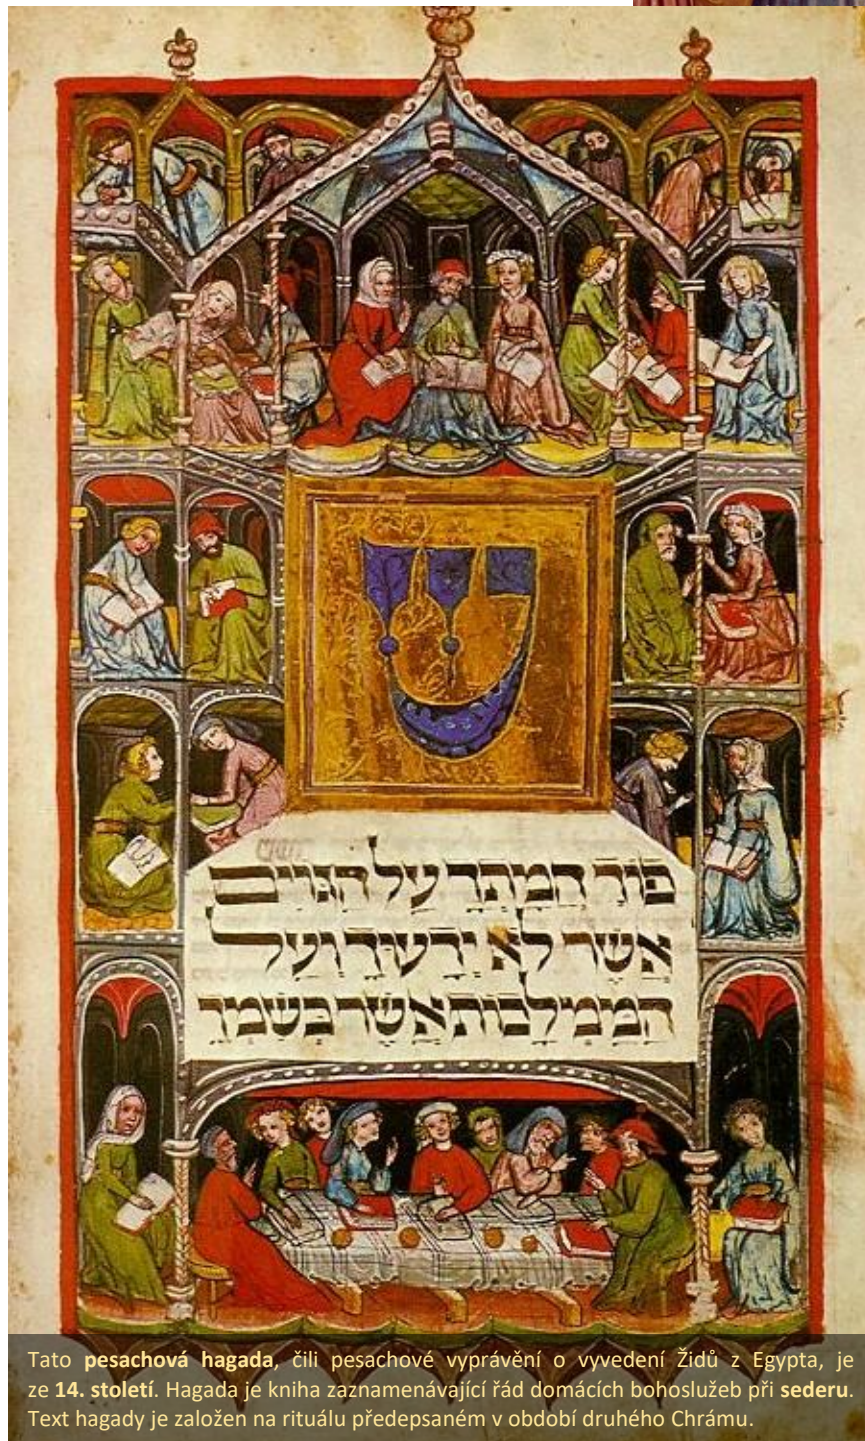 ש
פוך חמתך על הגוים
אשר לא ידעוך ועל
הממלכות אשר בשמך
Tato pesachová hagada, čili pesachové vyprávění o vyvedení Židů z Egypta, je
ze 14. století. Hagada je kniha zaznamenávající řád domácích bohoslužeb při sederu.
Text hagady je založen na rituálu předepsaném v období druhého Chrámu.